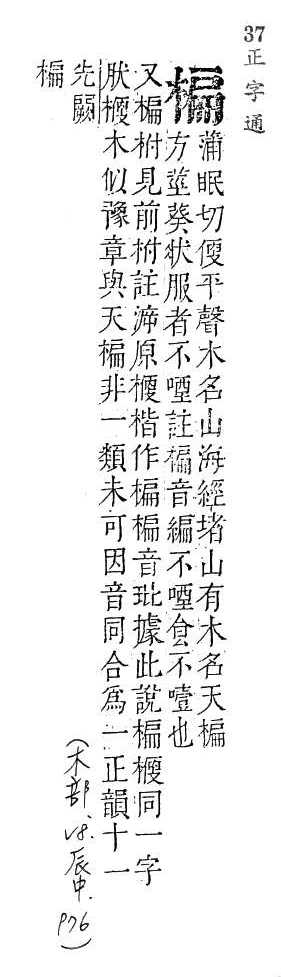 37正字通
楄
蒲眠切便平聲木名山海經堵山有木名天楄
方莖葵狀服者不㖶註楄音編不㖶食不噎也
又楄柎見前柎註㴑原楩楷作楄楄音玭據此說楄楩同一字
㽵楩木似豫章與天楄非一類未可因音同合爲一正韻十一
先闕
楄
(木部,V8.辰中,P76)